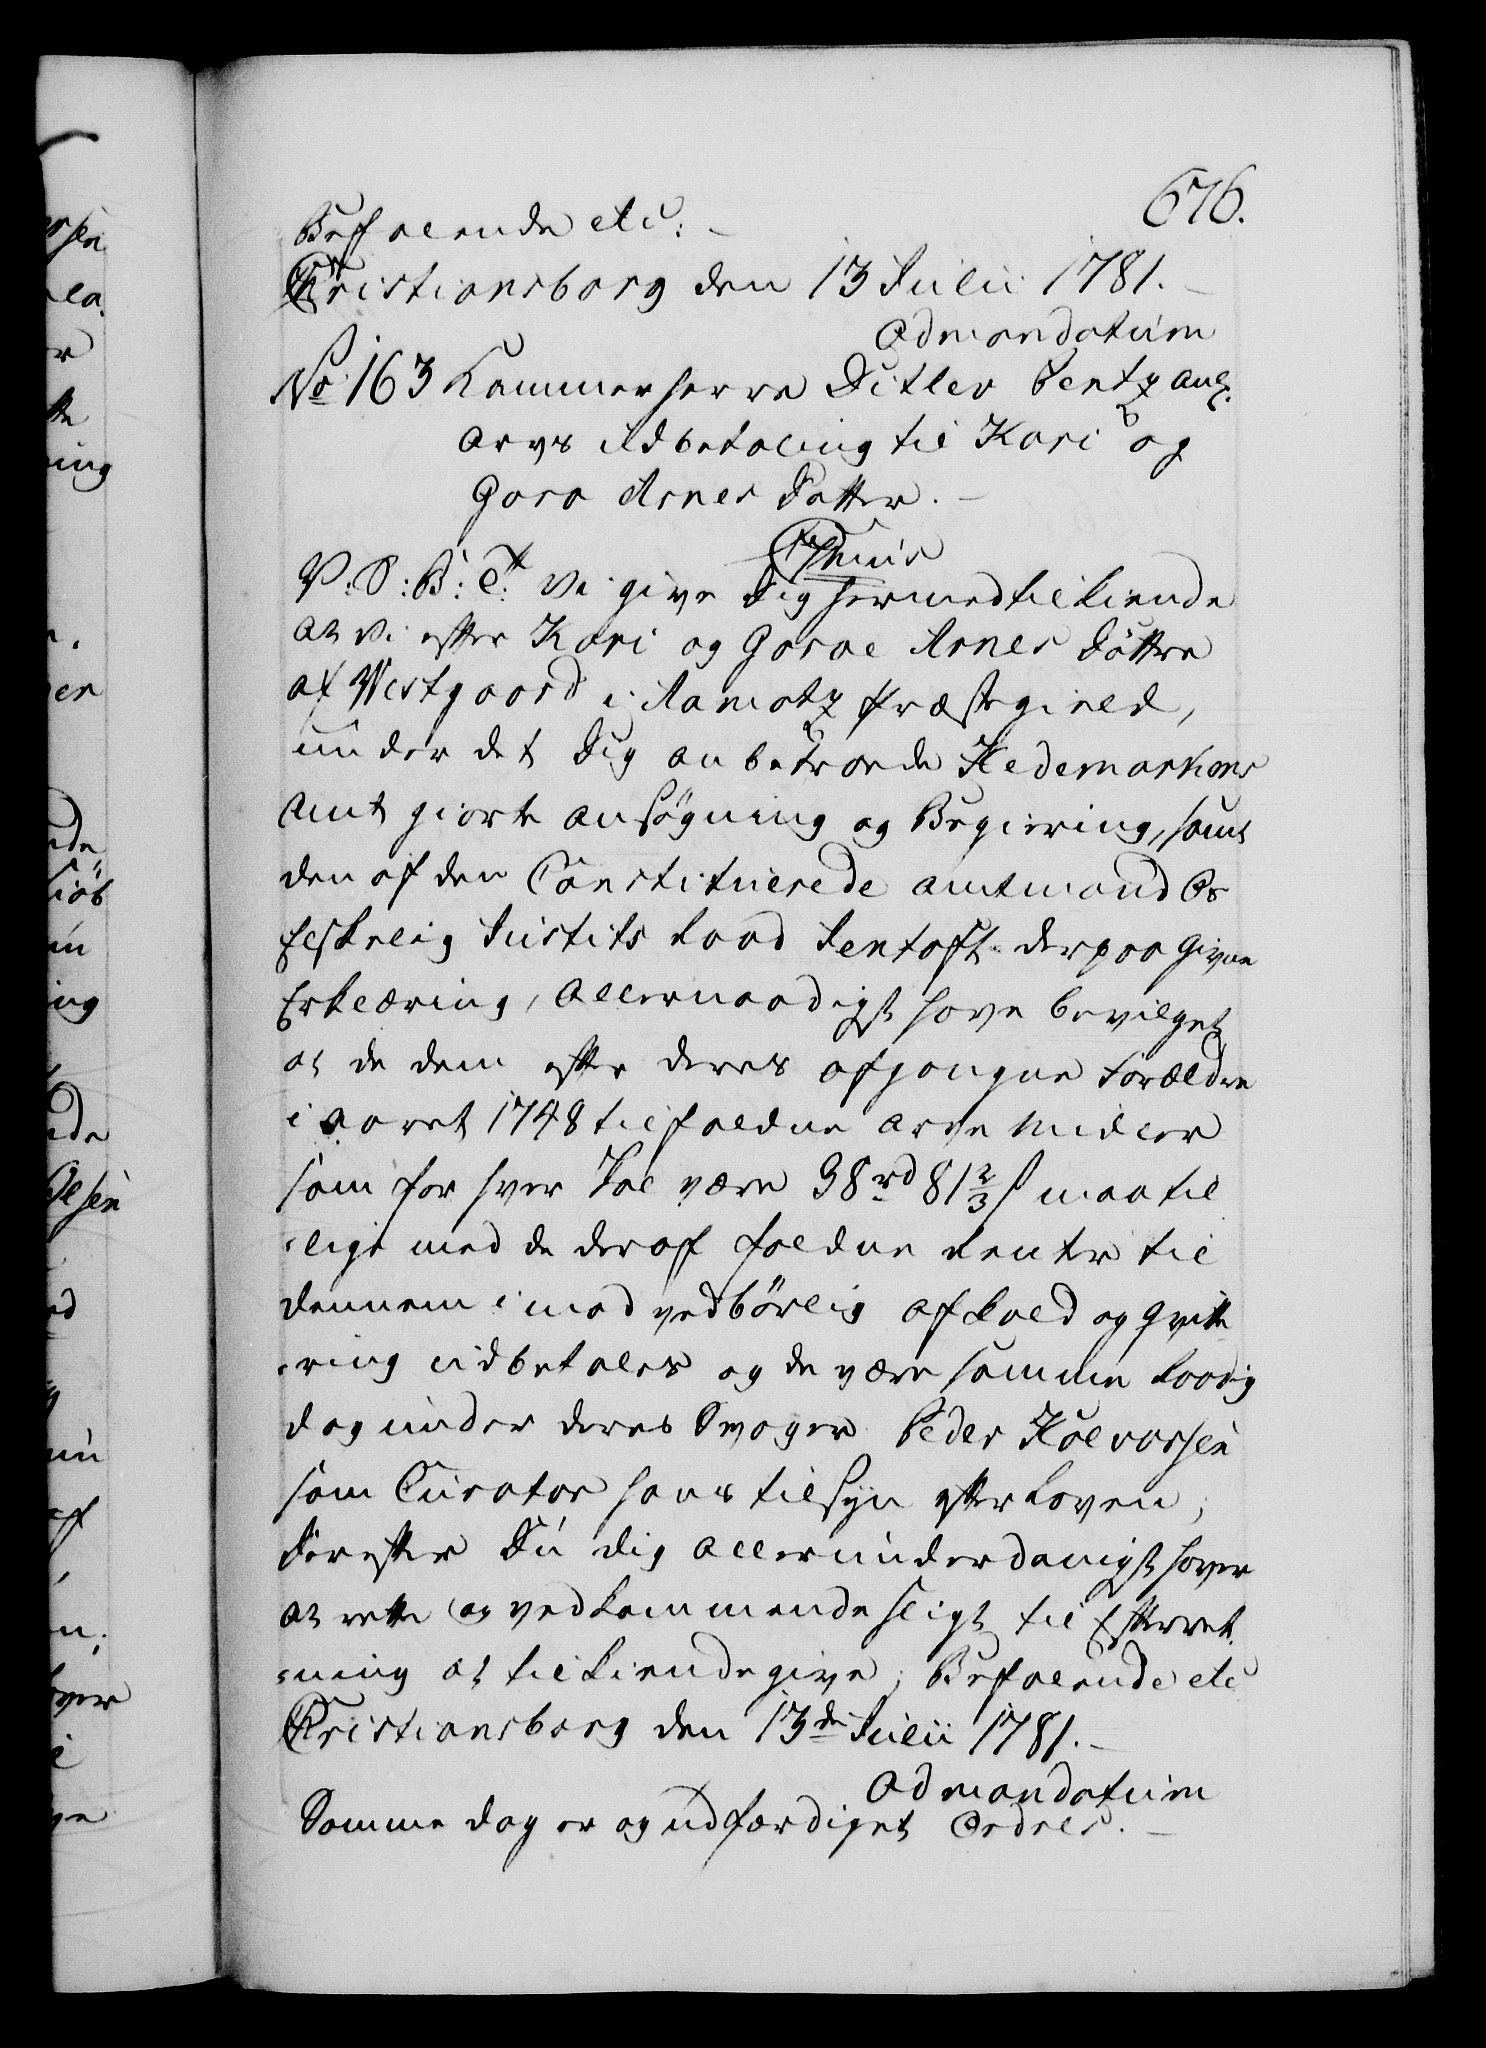 676.
Befalende etc: –
Christiansborg den 13 Julii 1781. –
Ad mandatum
No 163 Kammerherre Ditlev Pentz ang:
Arvs Udbetaling til Kari og
Goro Arnes Datter. –
V: S: B: T: Vi give Dig hermed tilkiende
at Vi efter Kari og Goroe Arnes Døttre
af Westgaard i Aamotz Præstegield,
under det Dig anbetroede Hedemarkens
Amt giorte Ansøgning og Begiering, samt
den af den Constituerede Amtmand Os
Elskelig Justits Raad Tentoft derpaa Givne
Erklæring, Allernaadigst have bevilget,
at de dem efter deres afgangne Forældre
i Aaret 1748 tilfaldne Arve Midler
som for hver skal være 38rd 81 2/3 s maa til
-lige med de deraf faldne Renter til
dennem imod vedbørlig Afkald og Qvitte
-ring udbetales og de være samme Raadig
dog under deres Svoger Peder Halvorsen
som Curator hans tilsyn efter Loven,
Derefter Du dig allerunderdanigst haver
at rette og vedkommende sligt til Efterret-
-ning at tilkiendegive; Befalende etc
Christiansborg den 13de Julii 1781. –
Ad mandatum
Samme dag er og udfærdiget Ordres. –